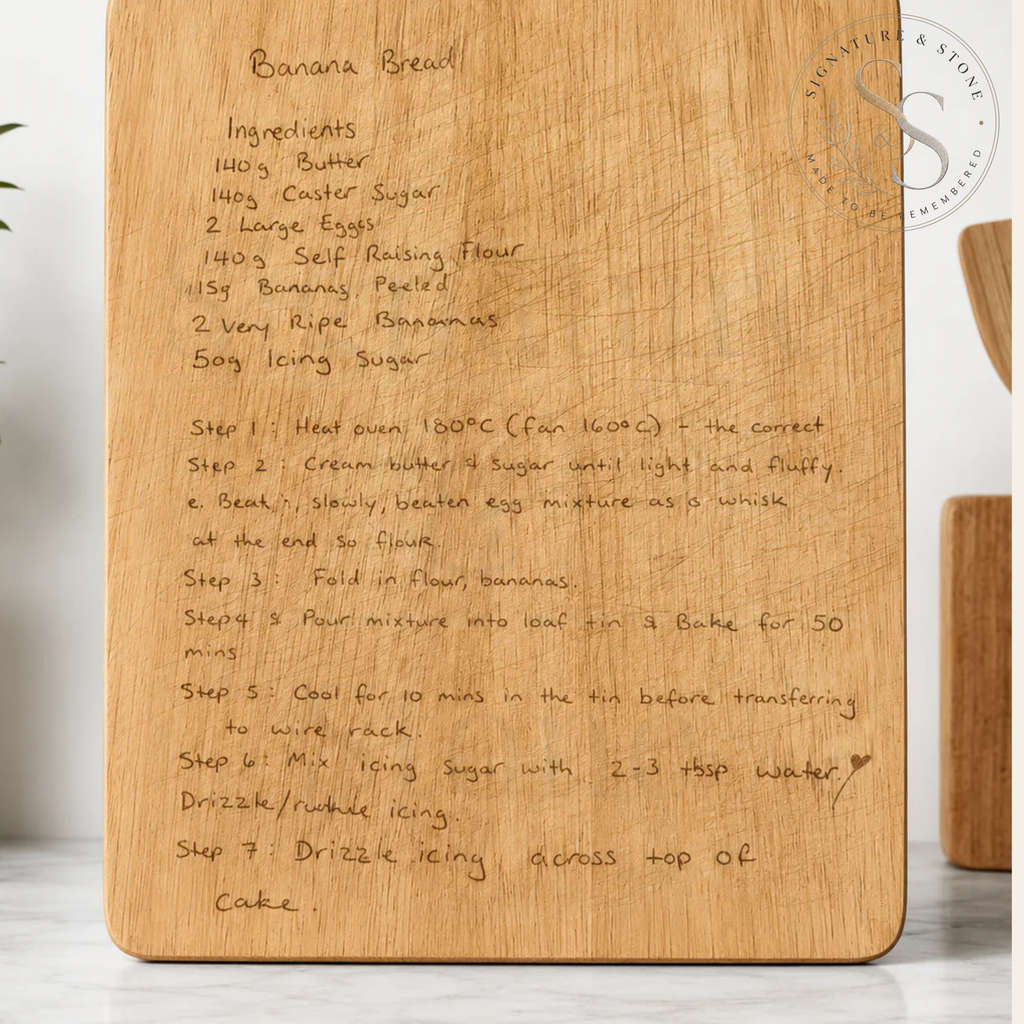 SIGNATURE & STONE
MADE TO BE REMEMBERED
S&S
Banana Bread
Ingredients
140g Butter
140g Caster Sugar
2 Large Eggs
140g Self Raising Flour
15g Bananas, Peeled
2 Very Ripe Bananas
50g Icing Sugar
Step 1: Heat oven 180°C (fan 160°C) - the correct
Step 2: Cream butter & sugar until light and fluffy.
e. Beat, slowly, beaten egg mixture as a whisk
at the end so flour.
Step 3: Fold in flour, bananas.
Step 4 & Pour mixture into loaf tin & Bake for 50
mins
Step 5: Cool for 10 mins in the tin before transferring
to wire rack.
Step 6: Mix icing sugar with 2-3 tbsp water.
Drizzle/ icing.
Step 7: Drizzle icing across top of
cake.